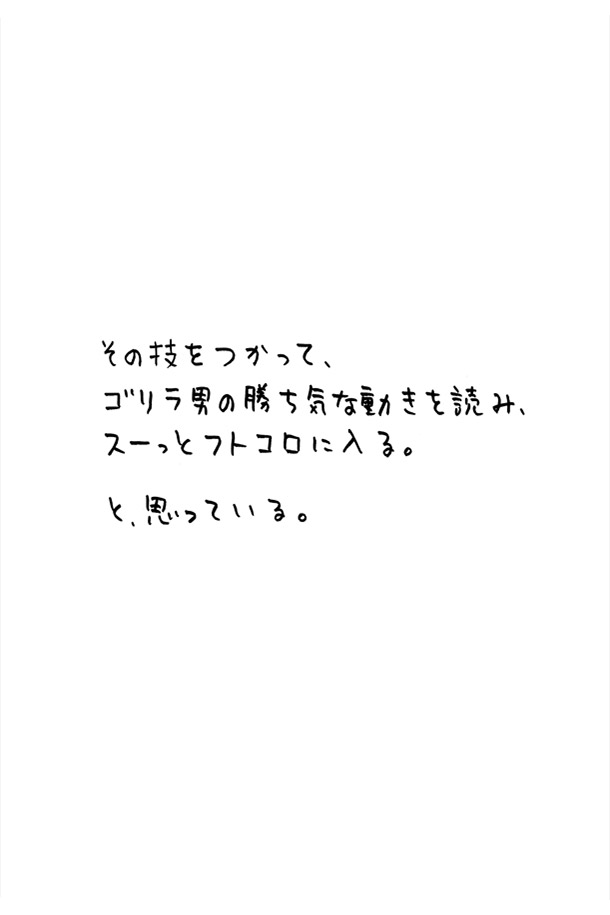 その技をつかって、
ゴリラ男の勝ち気な動きを読み、
スーっとフトコロに入る。
と、思っている。